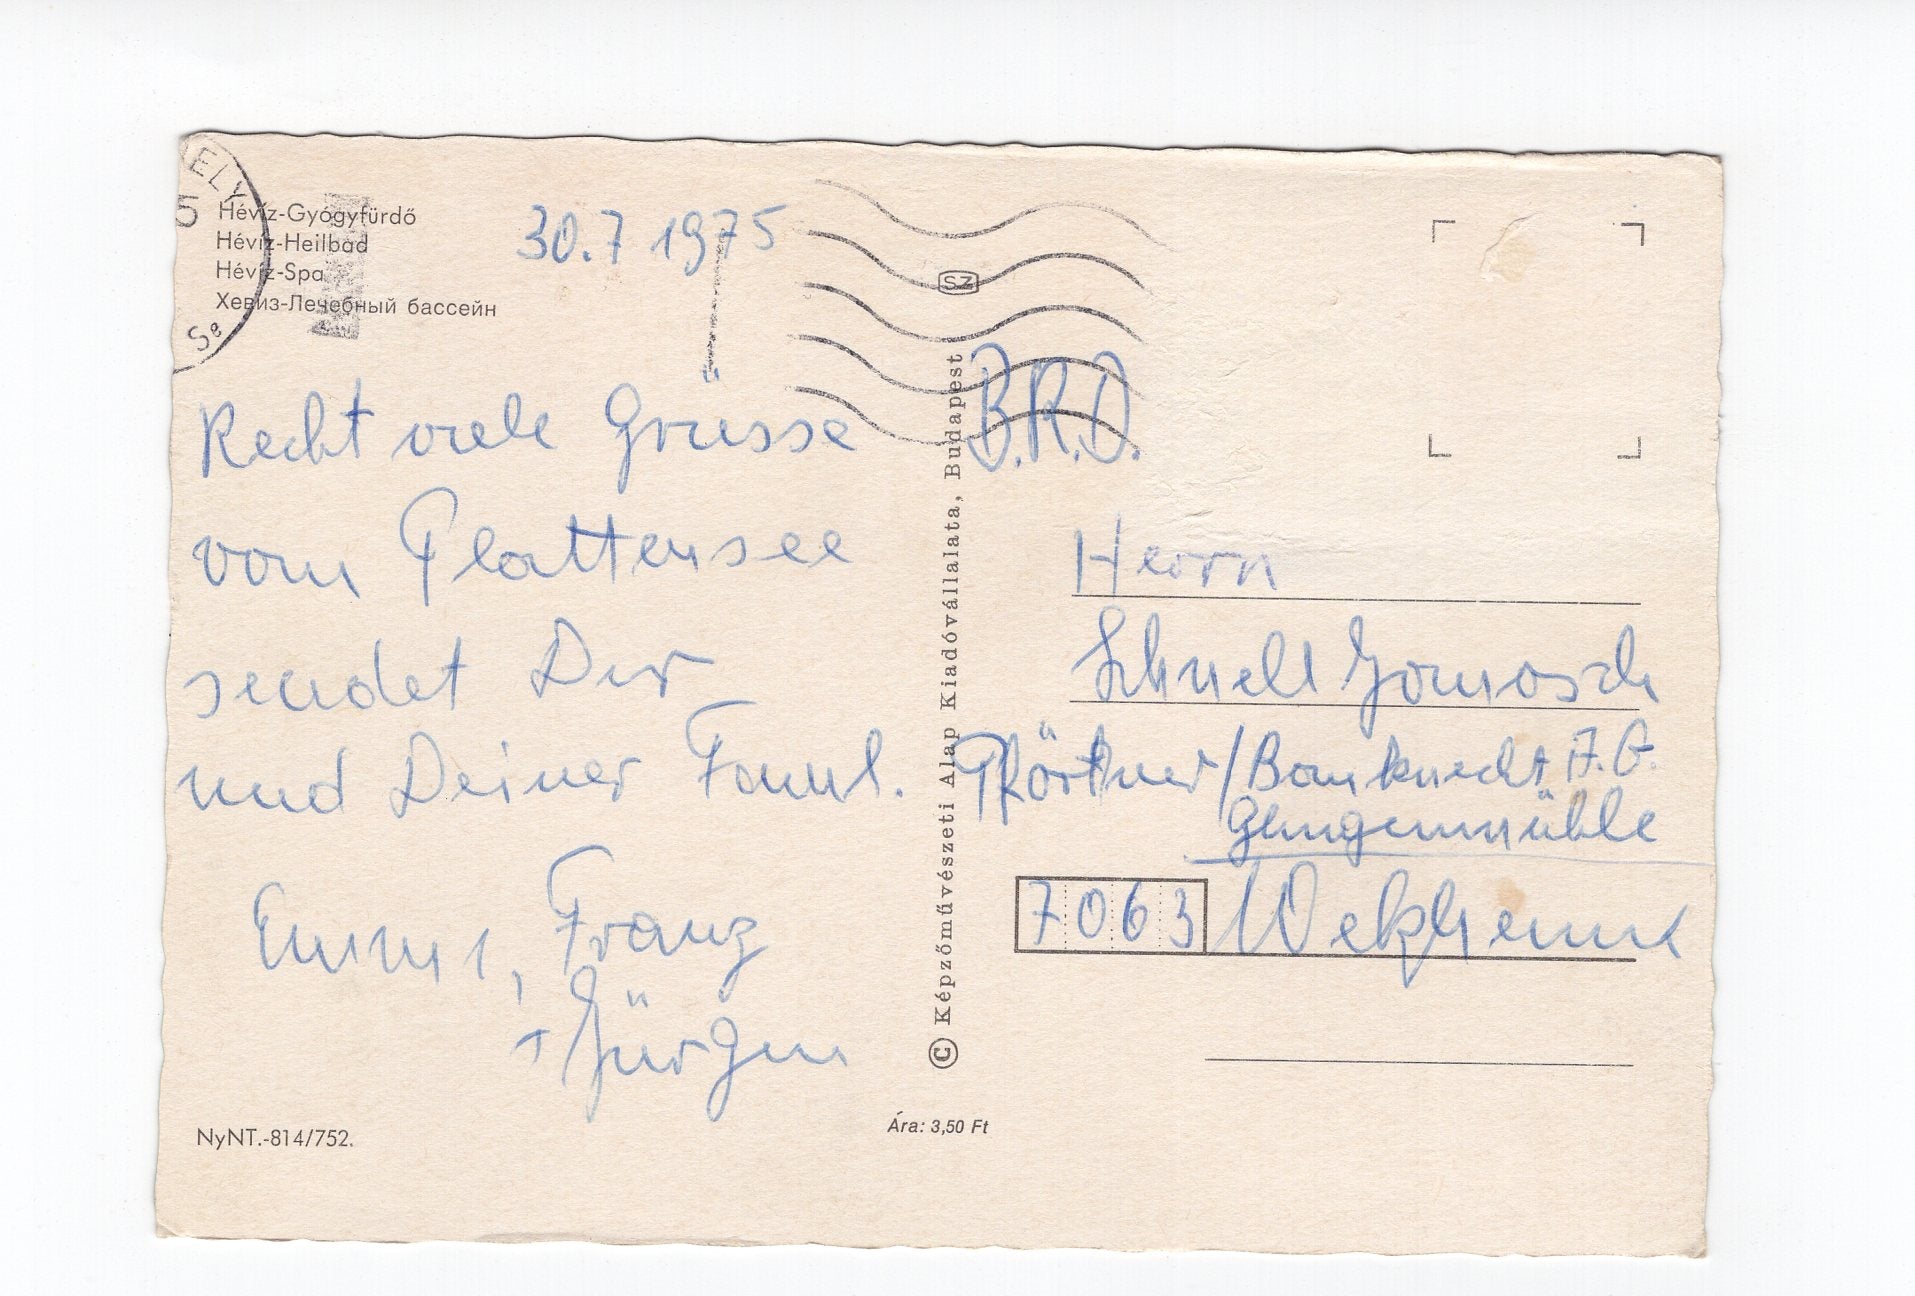 ELY
5
Se
Hévíz-Gyógyfürdő
Hévíz-Heilbad
Hévíz-Spa
Хевиз-Лечебный бассейн
30.7 1975
Recht viele Grüsse
vom Plattensee
sendet Dir
und Deiner Faml.
Emmi, Franz
+ Jürgen
NyNT.-814/752.
SZ
© Képzőművészeti Alap Kiadóvállalata, Budapest
Ára: 3,50 Ft
B.R.D.
Herrn
Schnell
Pförtner / Bauknecht A.G.
7063